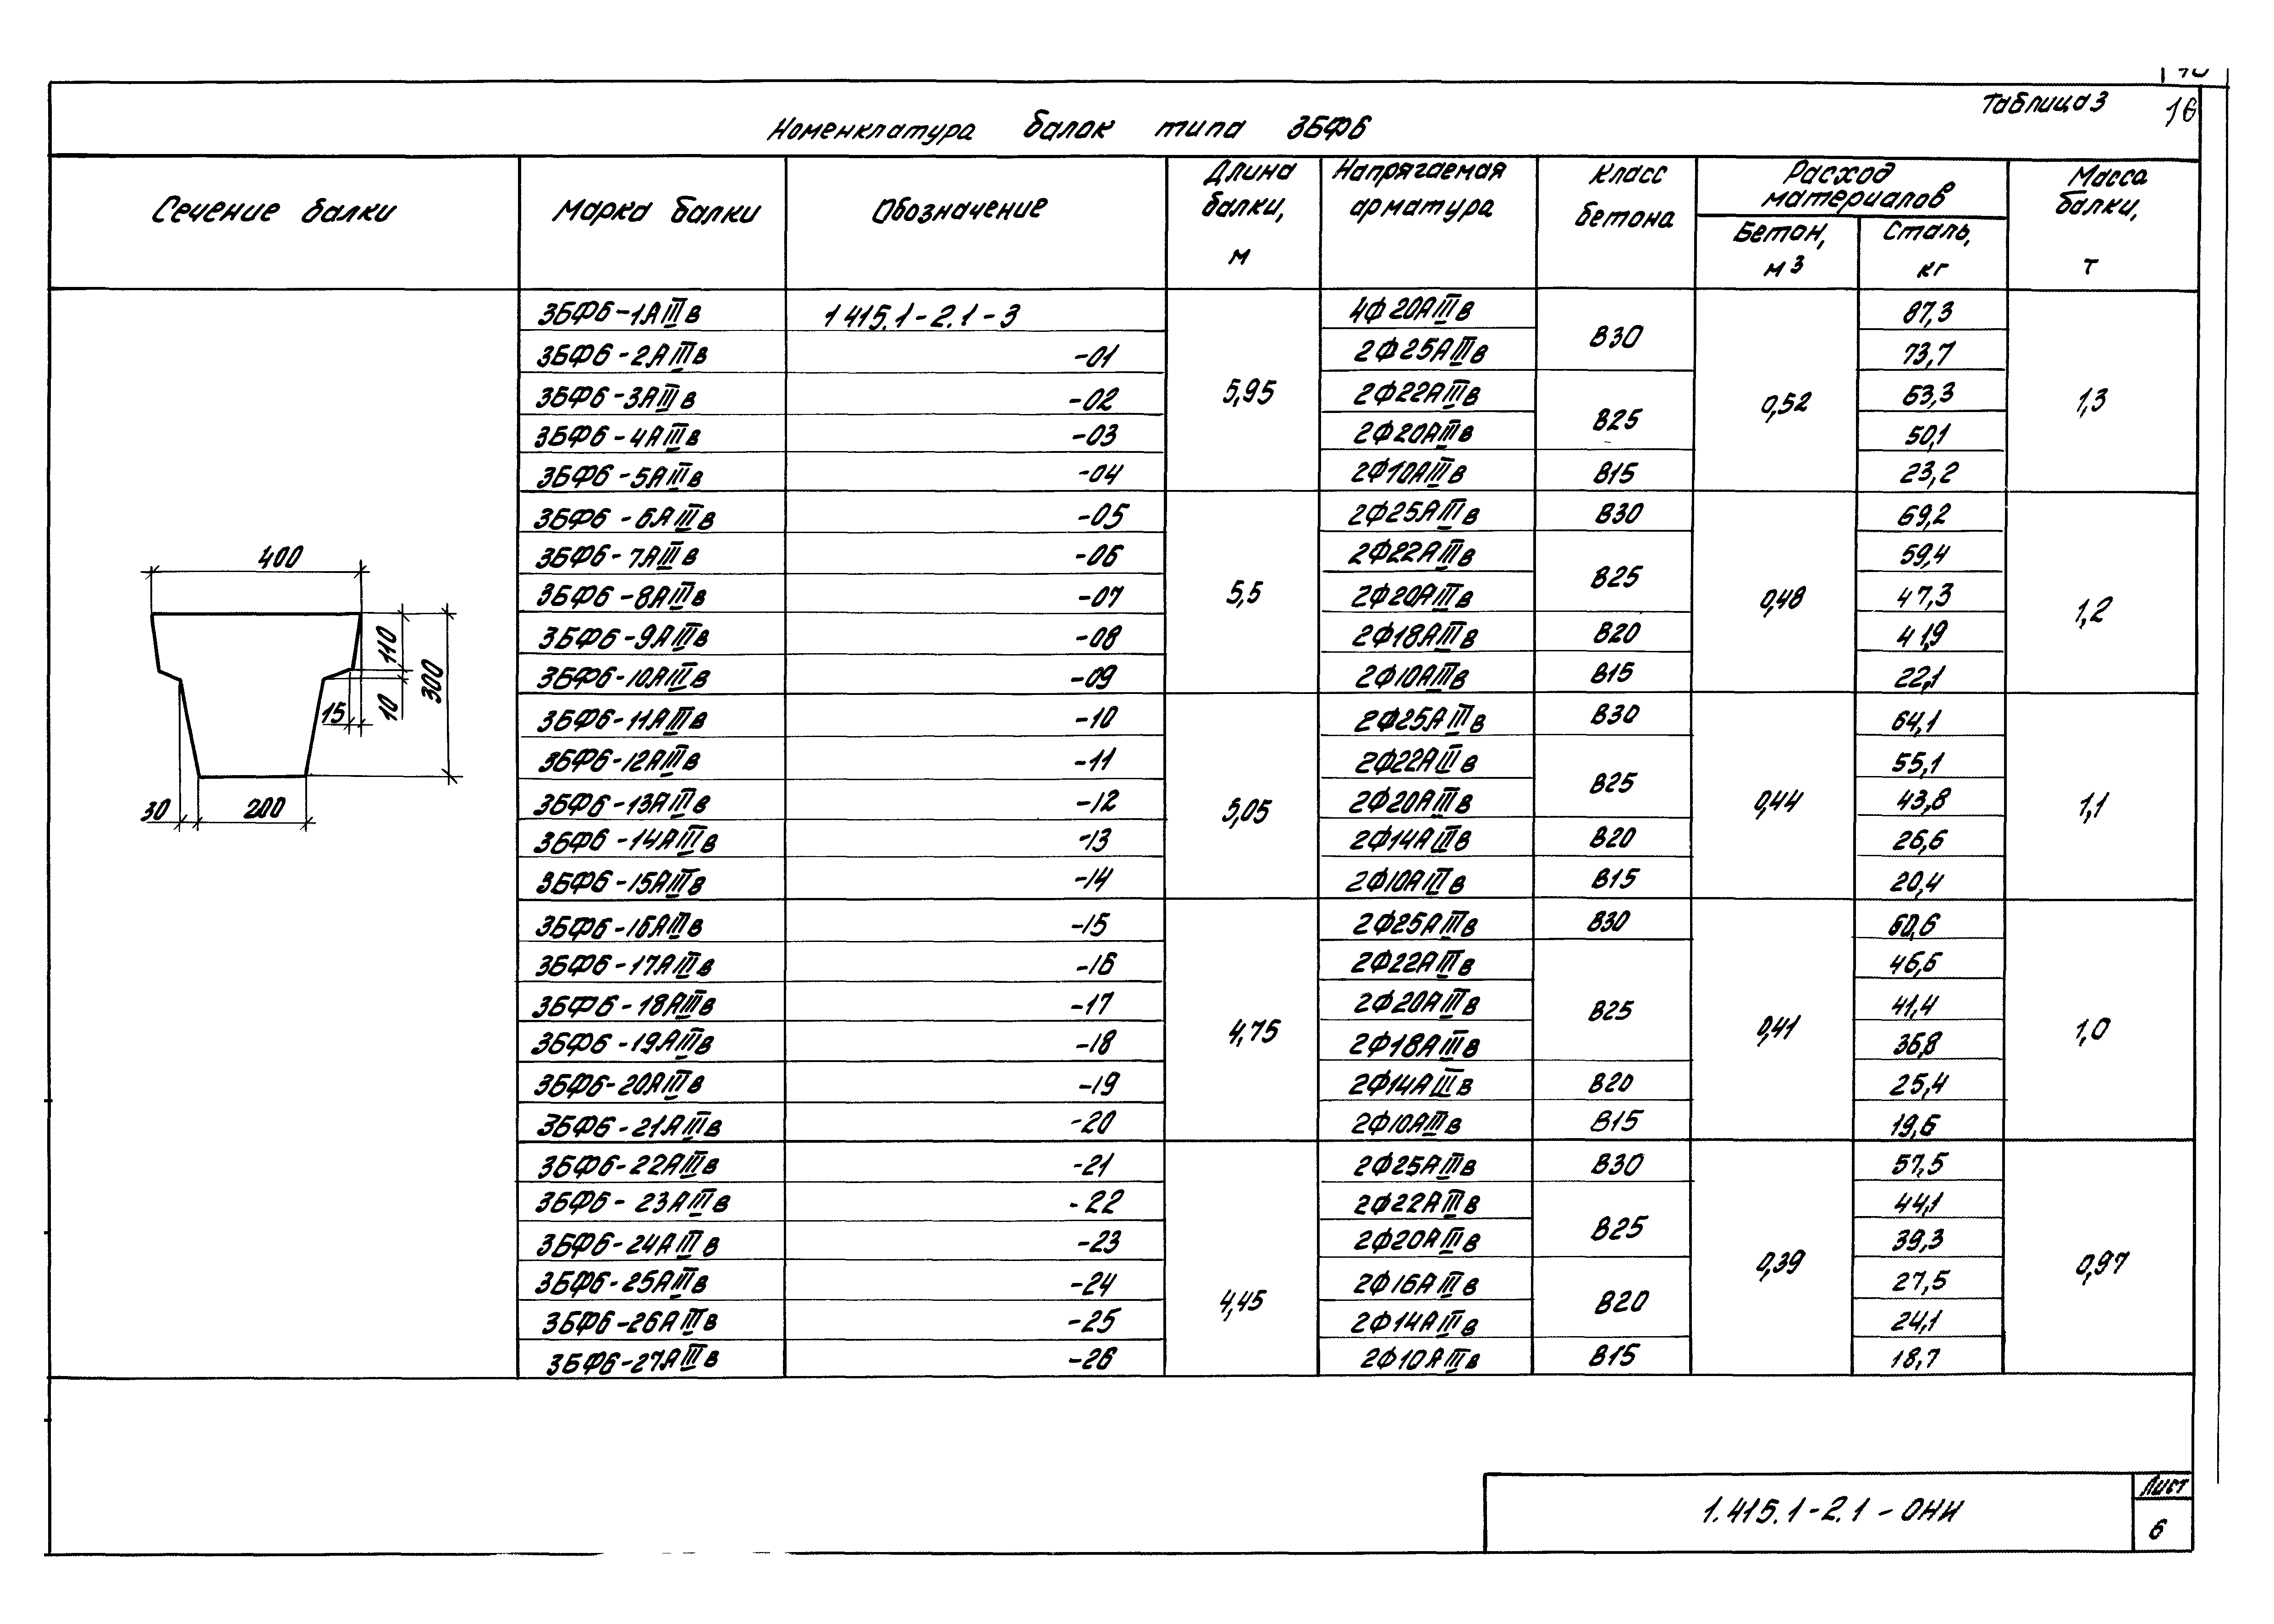 Таблица 3
16
Номенклатура балок типа 3БФ6
Сечение балки
Марка балки
Обозначение
Длина балки, м
Напрягаемая арматура
Класс бетона
Расход материалов
Бетон, м³
Сталь, кг
Масса балки, т
400
110
10
300
15
30
200
3БФ6-1АIIIв 1 415.1-2.1-3 5,95 4Ф20АIIIв В30 0,52 87,3 1,3
3БФ6-2АIIIв -01 2Ф25АIIIв 73,7
3БФ6-3АIIIв -02 2Ф22АIIIв В25 63,3
3БФ6-4АIIIв -03 2Ф20АIIIв 50,1
3БФ6-5АIIIв -04 2Ф10АIIIв В15 23,2
3БФ6-6АIIIв -05 5,5 2Ф25АIIIв В30 0,48 69,2 1,2
3БФ6-7АIIIв -06 2Ф22АIIIв В25 59,4
3БФ6-8АIIIв -07 2Ф20АIIIв 47,3
3БФ6-9АIIIв -08 2Ф18АIIIв В20 41,9
3БФ6-10АIIIв -09 2Ф10АIIIв В15 22,1
3БФ6-11АIIIв -10 5,05 2Ф25АIIIв В30 0,44 64,1 1,1
3БФ6-12АIIIв -11 2Ф22АIIIв В25 55,1
3БФ6-13АIIIв -12 2Ф20АIIIв 43,8
3БФ6-14АIIIв -13 2Ф14АIIIв В20 26,6
3БФ6-15АIIIв -14 2Ф10АIIIв В15 20,4
3БФ6-16АIIIв -15 4,75 2Ф25АIIIв В30 0,41 60,6 1,0
3БФ6-17АIIIв -16 2Ф22АIIIв В25 46,6
3БФ6-18АIIIв -17 2Ф20АIIIв 41,4
3БФ6-19АIIIв -18 2Ф18АIIIв 36,8
3БФ6-20АIIIв -19 2Ф14АIIIв В20 25,4
3БФ6-21АIIIв -20 2Ф10АIIIв В15 19,6
3БФ6-22АIIIв -21 4,45 2Ф25АIIIв В30 0,39 57,5 0,97
3БФ6-23АIIIв -22 2Ф22АIIIв В25 44,1
3БФ6-24АIIIв -23 2Ф20АIIIв 39,3
3БФ6-25АIIIв -24 2Ф16АIIIв В20 27,5
3БФ6-26АIIIв -25 2Ф14АIIIв 24,1
3БФ6-27АIIIв -26 2Ф10АIIIв В15 18,7
1.415.1-2.1-ОНИ
Лист
6